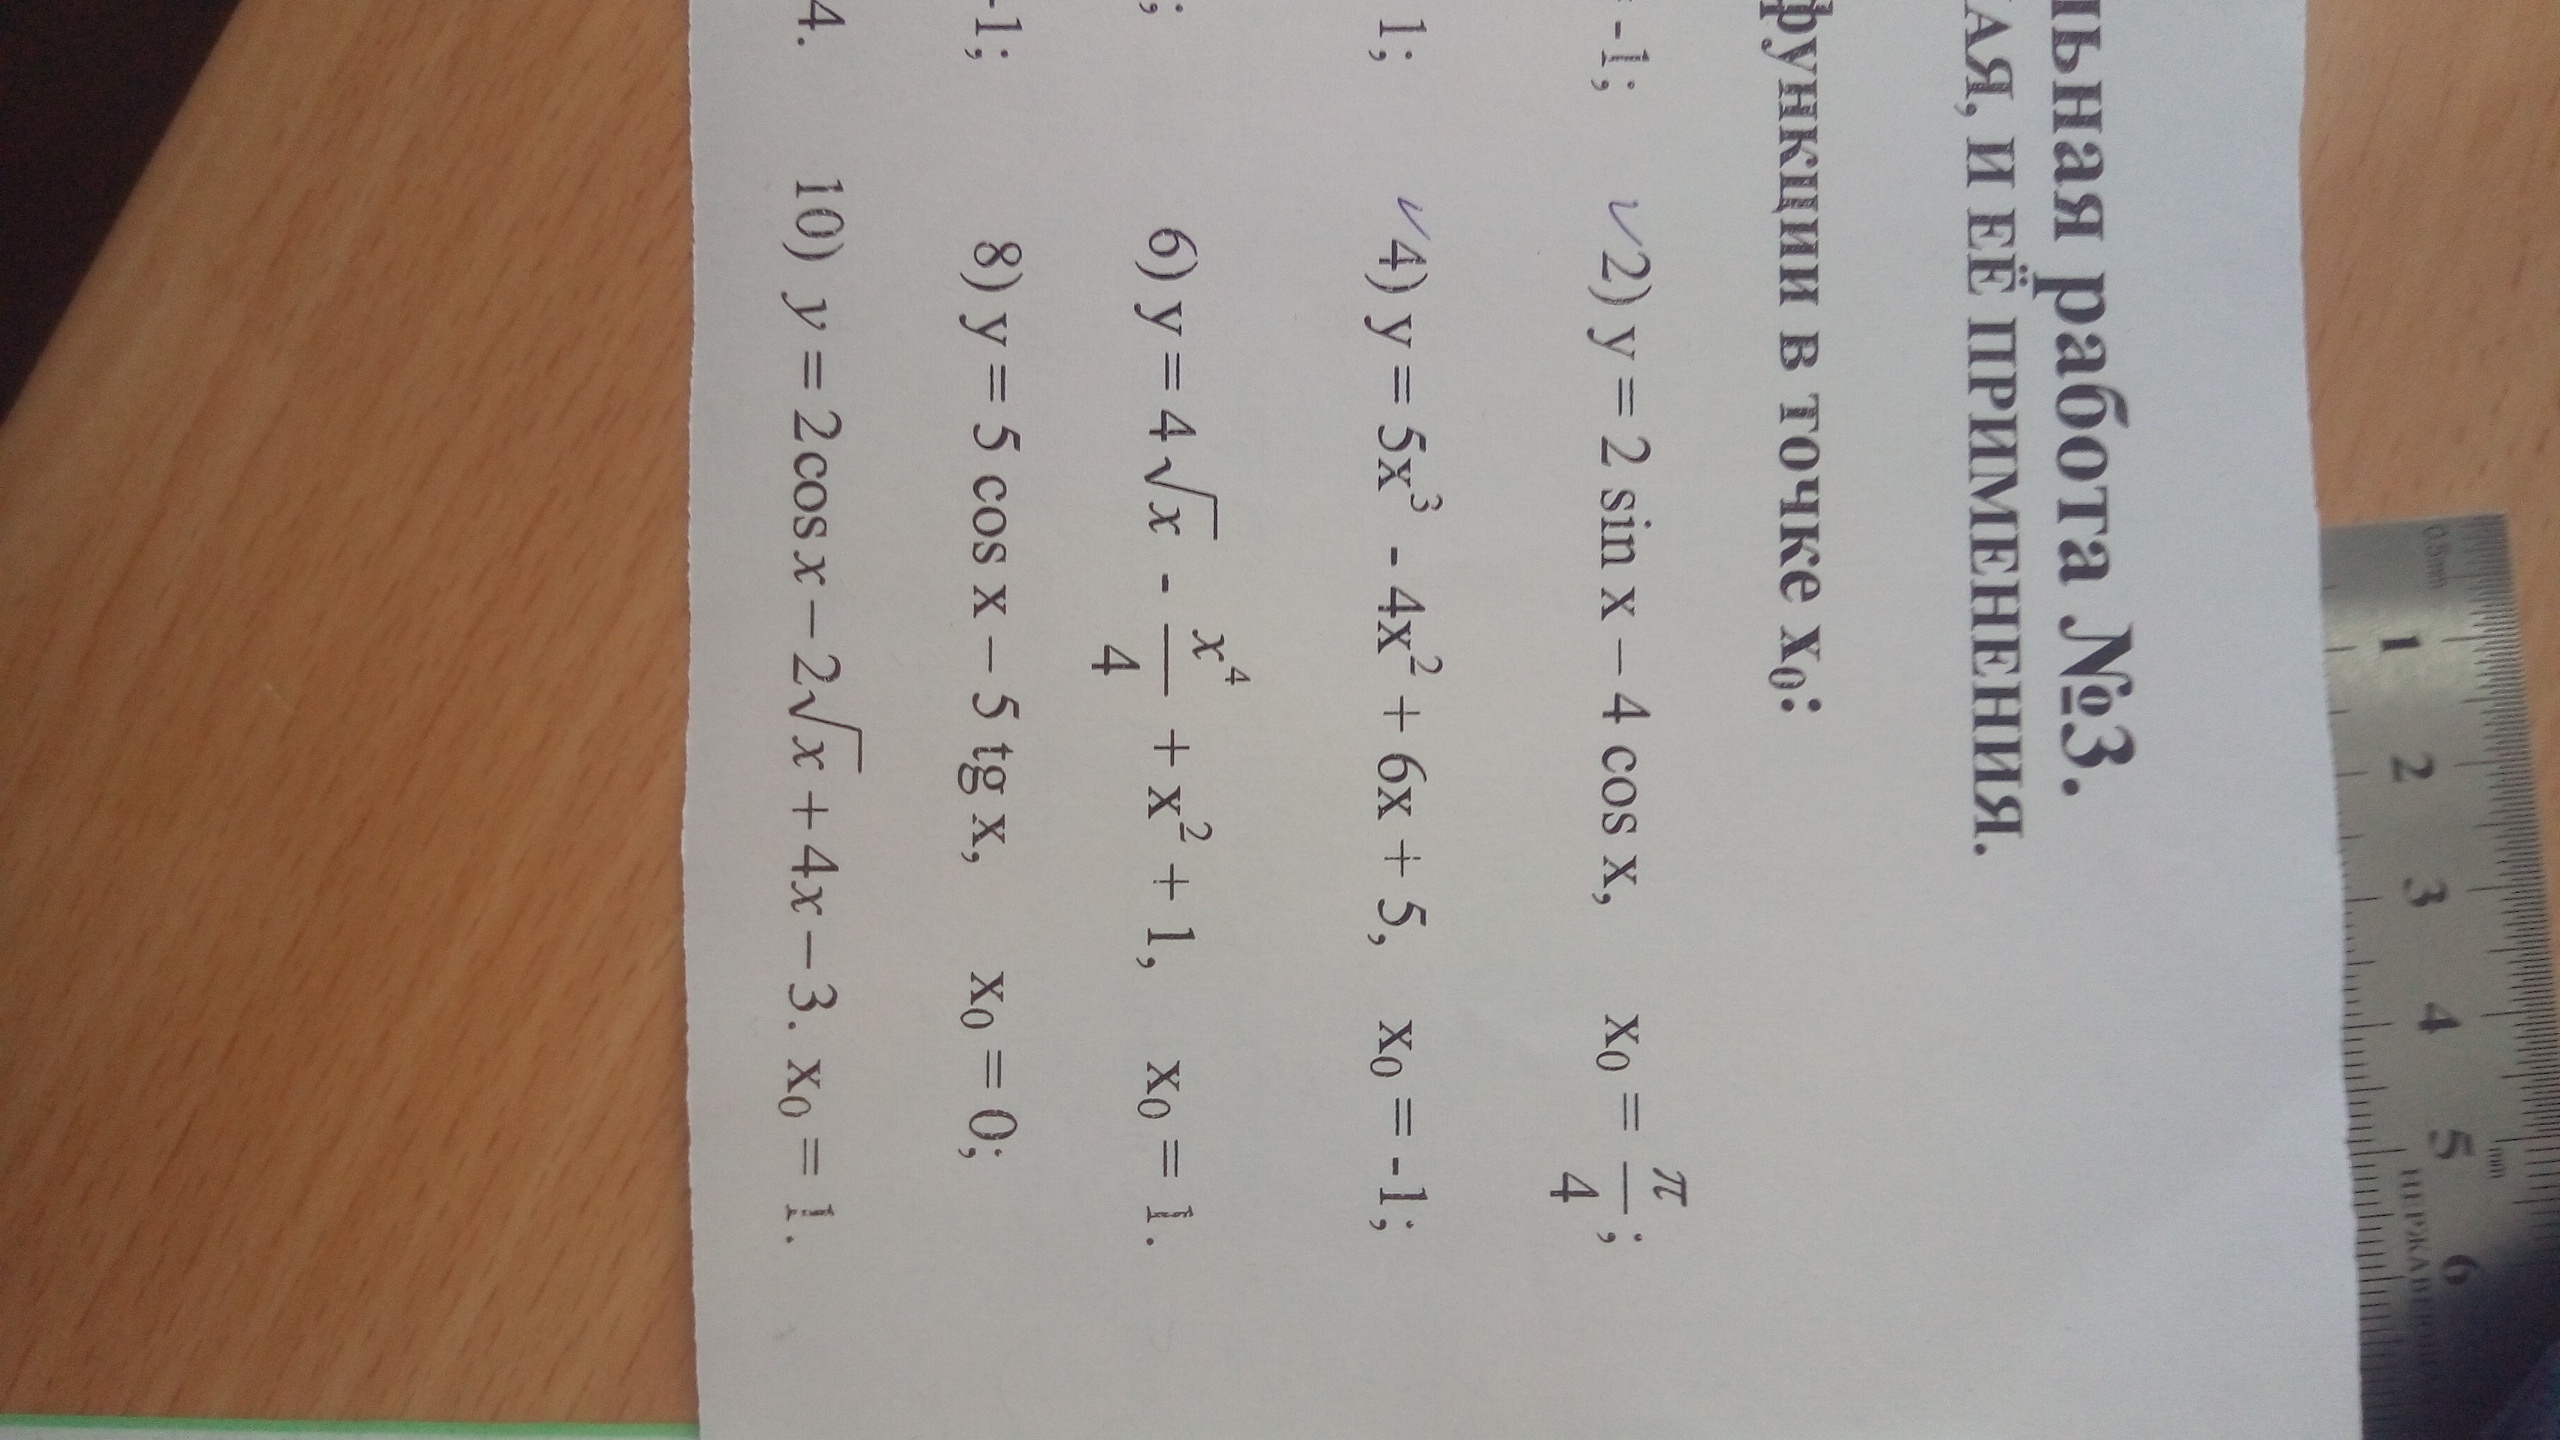 ьная работа №3.
АЯ, И ЕЁ ПРИМЕНЕНИЯ.
функции в точке x₀:
-1; 2) y = 2 sin x – 4 cos x, x₀ = π/4;
1; 4) y = 5x³ - 4x² + 6x + 5, x₀ = -1;
; 6) y = 4√x - x⁴/4 + x² + 1, x₀ = 1.
-1; 8) y = 5 cos x – 5 tg x, x₀ = 0;
4. 10) y = 2cos x – 2√x + 4x – 3. x₀ = 1.
0.5mm
1 2 3 4 5 6
mm